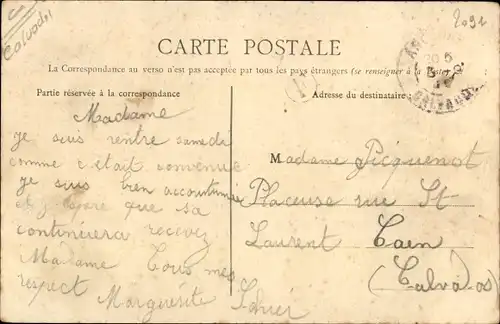 Calvados
2091
CARTE POSTALE
La Correspondance au verso n'est pas acceptée par tous les pays étrangers (se renseigner à la Poste)
Partie réservée à la correspondance
Adresse du destinataire
CALVADOS
Madame
je suis rentré samedi
comme c était convenue
je suis bien accoutumée
et j espère que sa
continuera recevez
Madame tous mes
respect Marguerite
Madame Picquenot
Placeuse rue St
Laurent Caen
(Calvados)